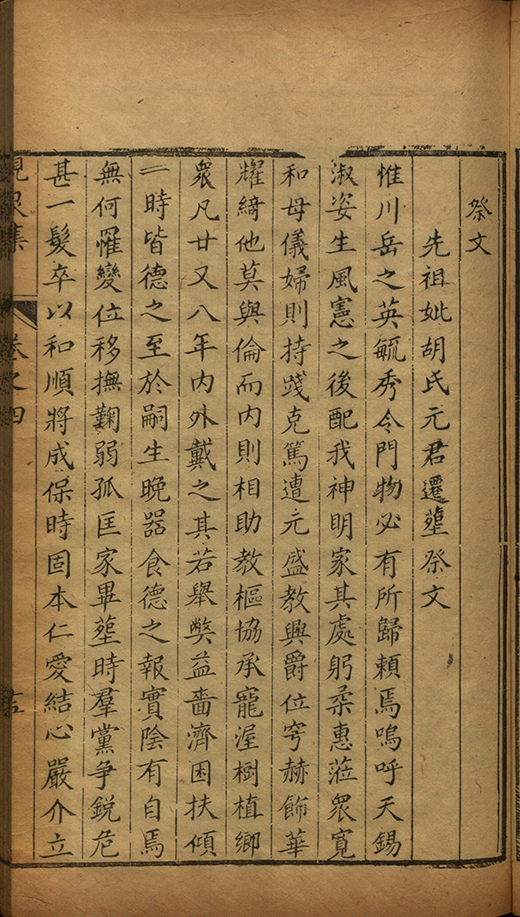 祭文
先祖妣胡氏元君遷塟祭文
惟川岳之英毓秀令門物必有所歸頼焉嗚呼天錫
淑姿生風憲之後配我神明家其處躬柔惠蒞衆寬
和母儀婦則持踐克篤遭元盛教興爵位穹赫飾華
耀綺他莫與倫而内則相助教樞協承寵渥樹植鄉
衆凡廿又八年内外戴之其若舉獘益嗇濟困扶傾
一時皆德之至於嗣生晚器食德之報實陰有自焉
無何罹變位移撫鞠弱孤匡家畢塟時羣黨争鋭危
甚一髮卒以和順將成保時固本仁愛結心嚴介立
峴泉集 卷之四